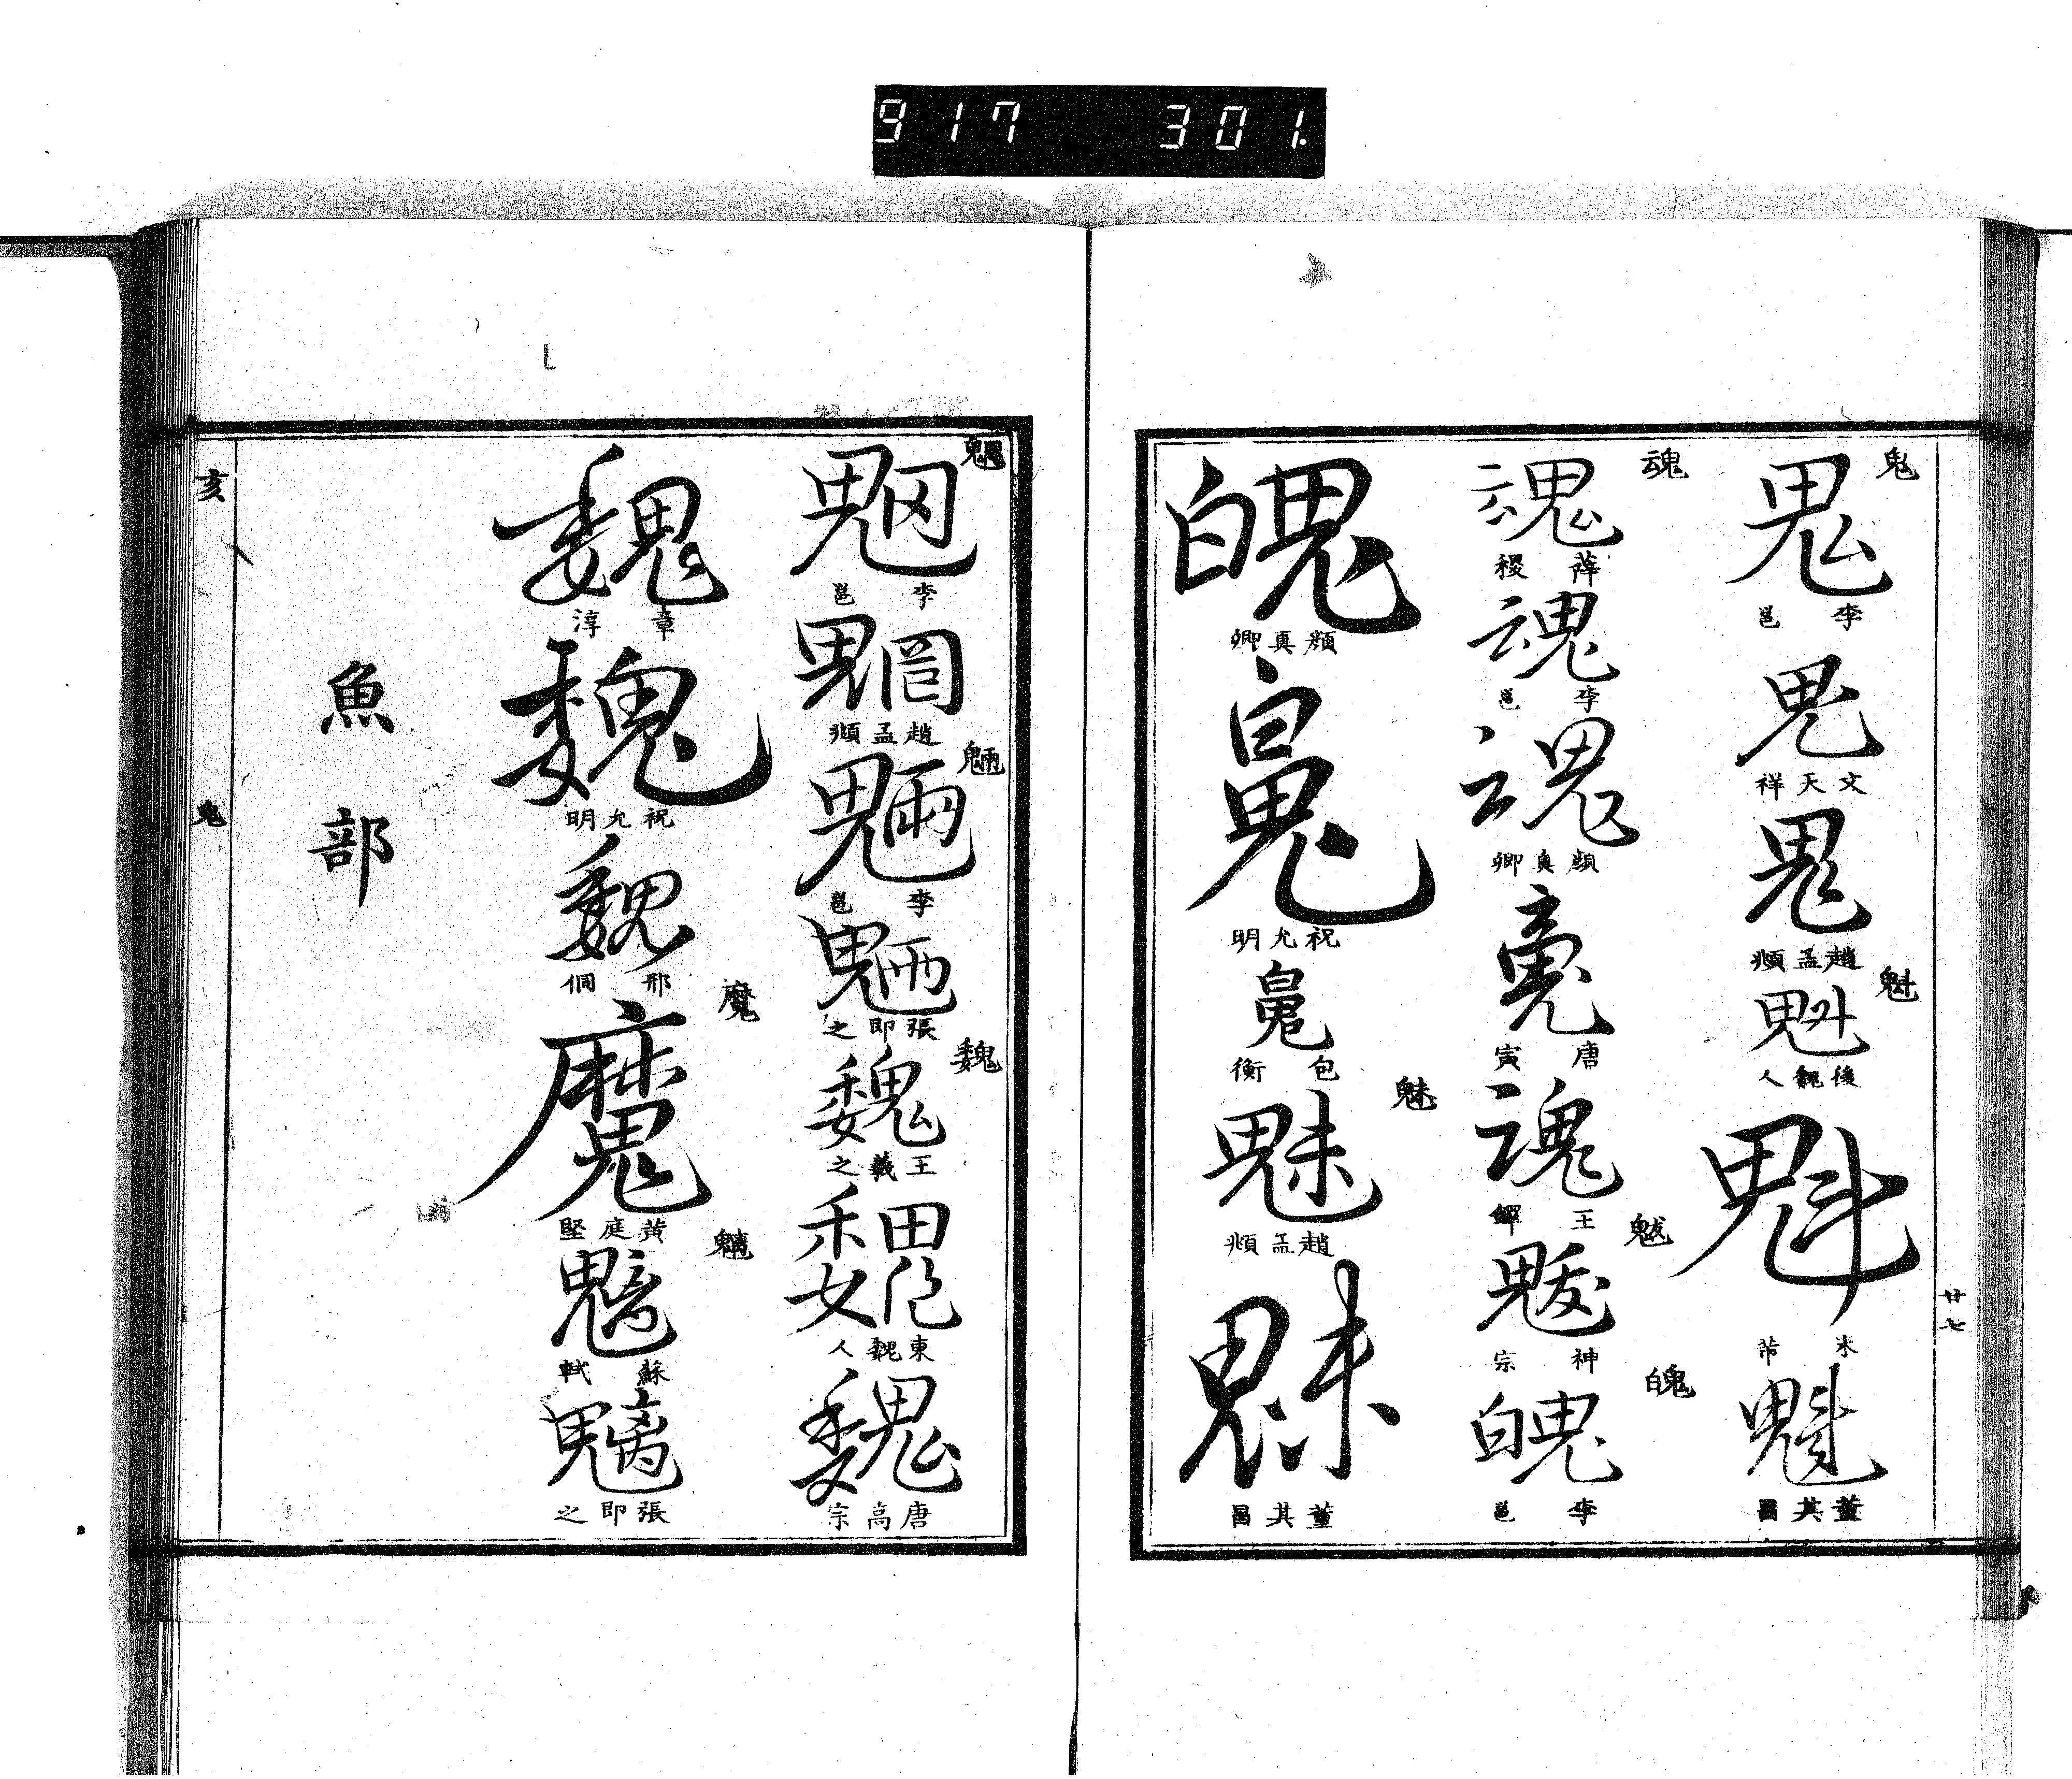 917 301.
廿七
鬼
鬼
李邕
鬼
文天祥
鬼
趙孟頫
魁
魁
後魏人
魁
米芾
魁
董其昌
魂
魂
薛稷
魂
李邕
魂
顏真卿
魂
唐寅
魂
王鐸
魃
魃
神宗
魄
魄
李邕
魄
顏真卿
魄
祝允明
魄
包衡
魅
魅
趙孟頫
魅
董其昌
魍
魍
李邕
魍
趙孟頫
魎
魎
李邕
魎
張即之
魏
魏
王羲之
魏
東魏人
魏
唐高宗
魏
章淳
魏
祝允明
魏
邢侗
魔
魔
黃庭堅
魑
魑
蘇軾
魑
張即之
魚部
亥
鬼